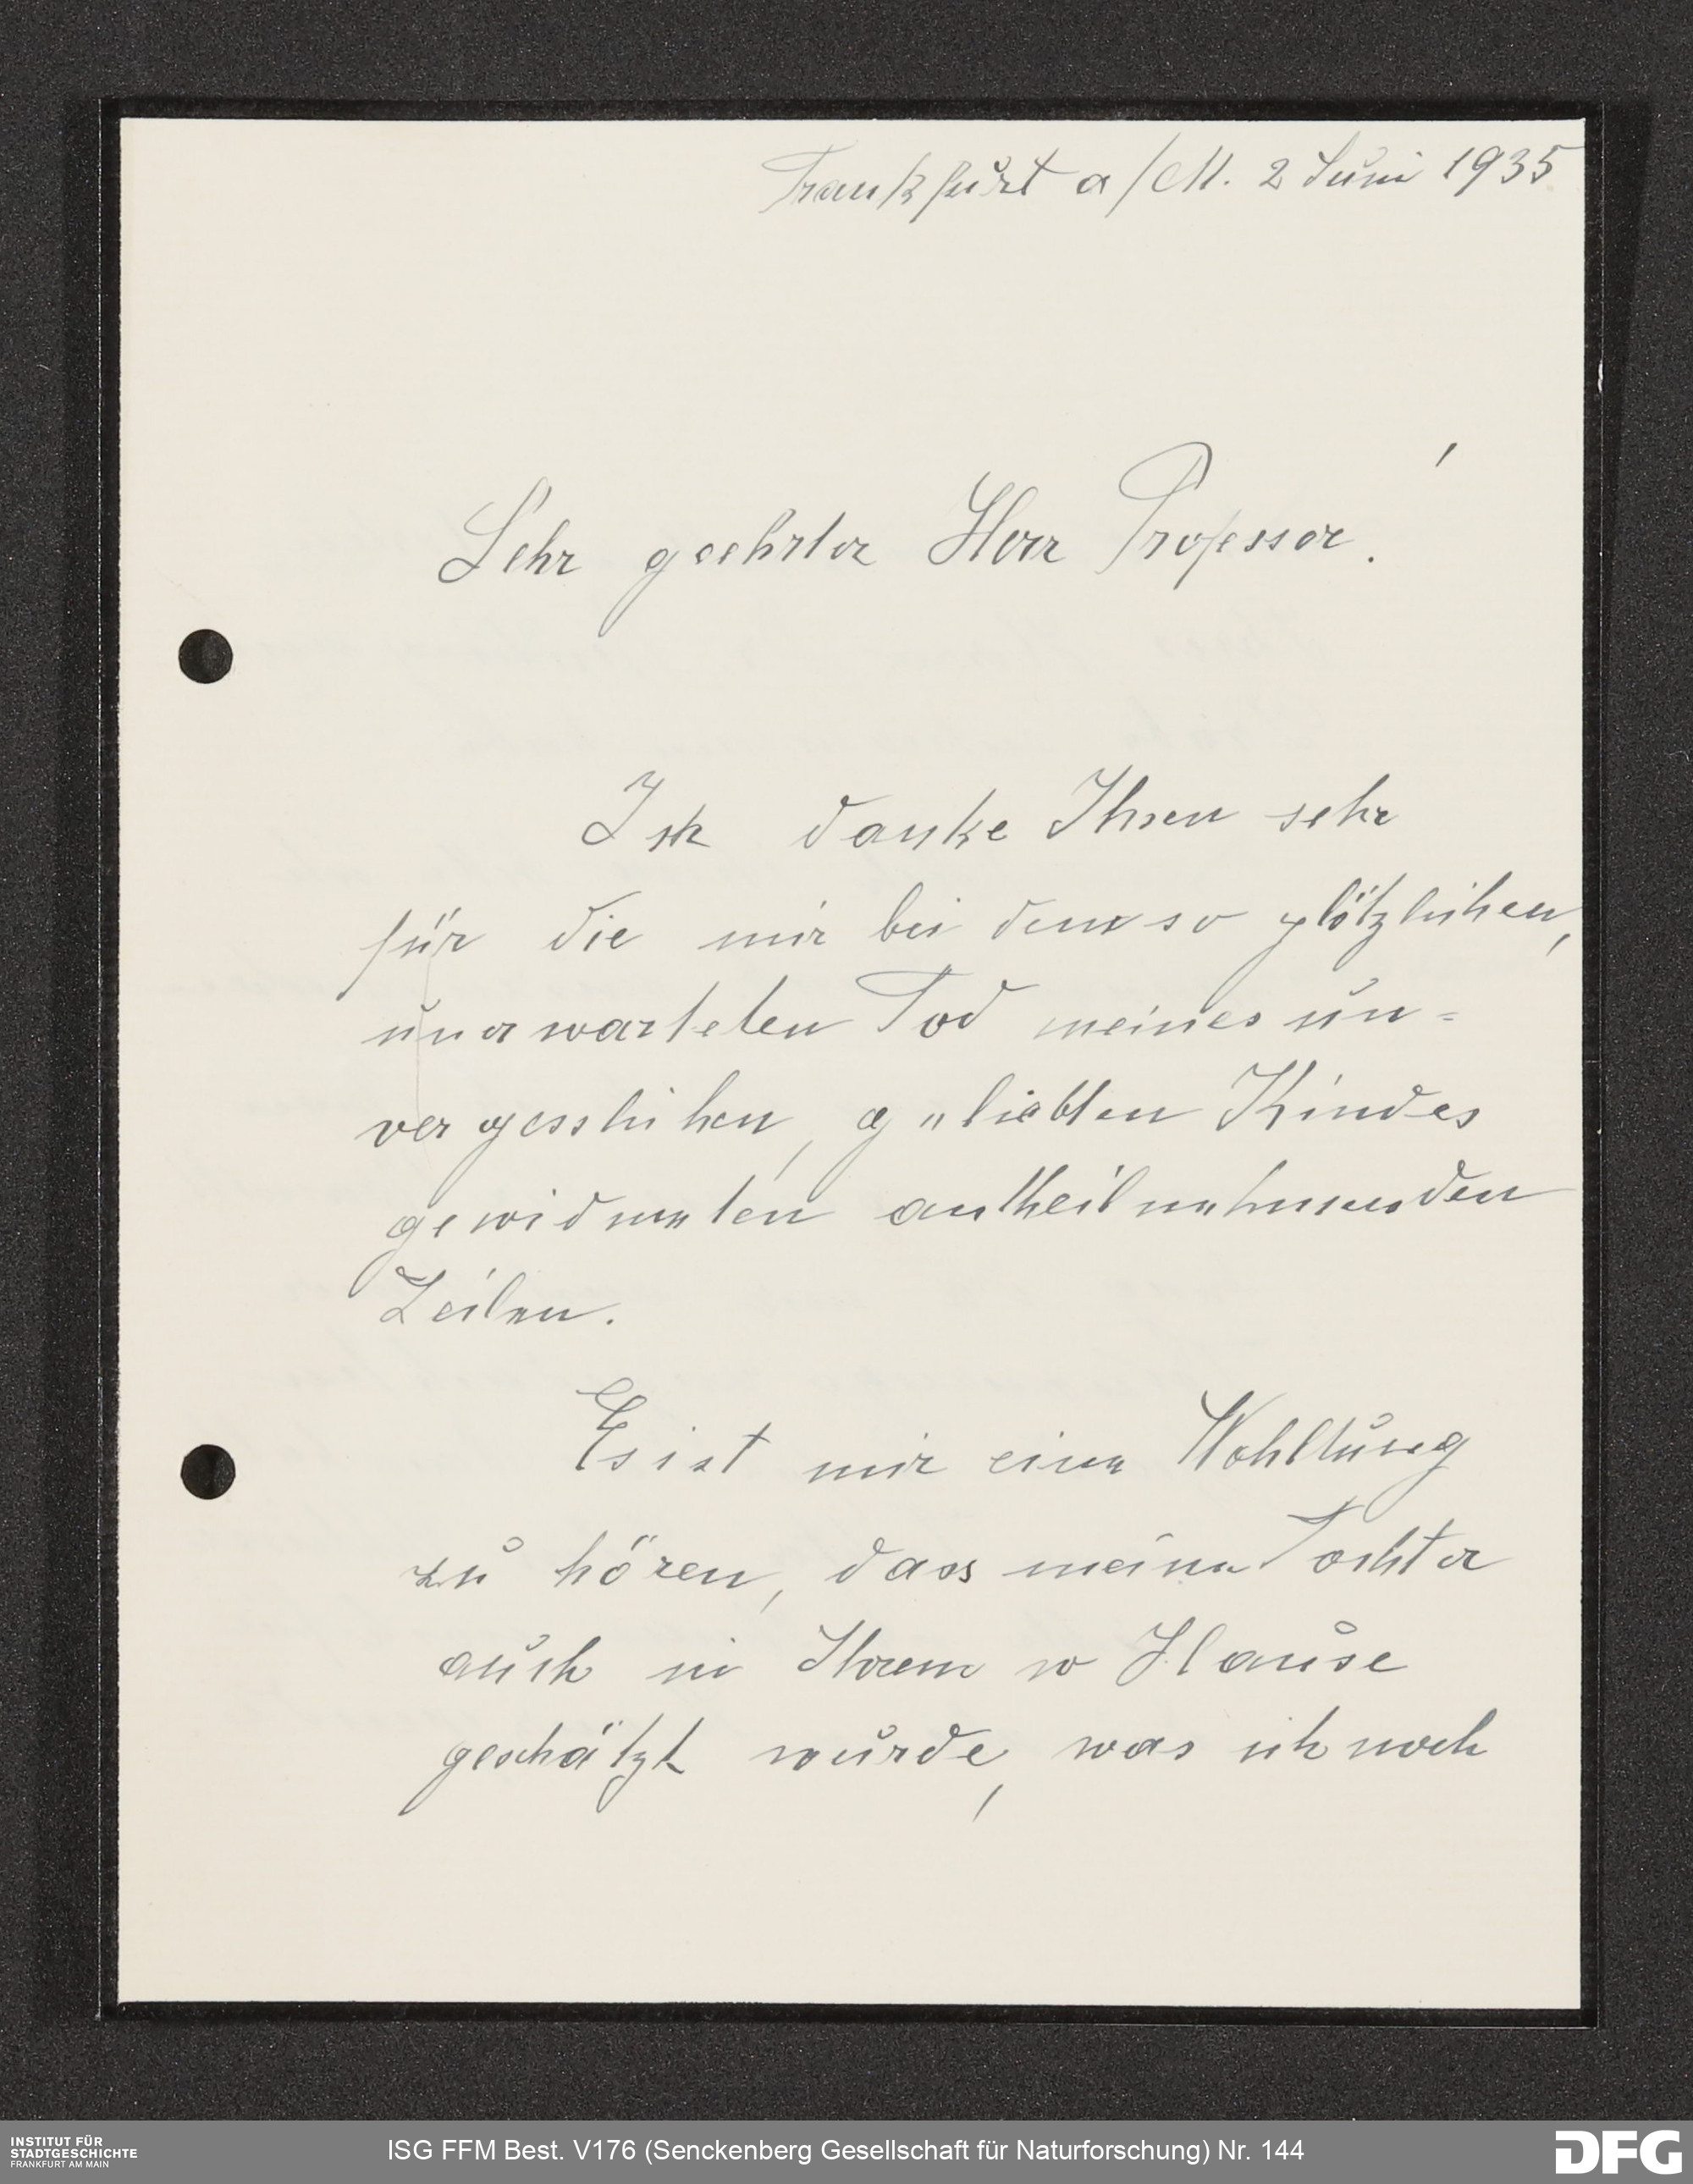 Frankfurt a/M. 2 Juni 1935
Sehr geehrter Herr Professor!
Ich danke Ihnen sehr
für die mir bei dem so plötzlichen,
unerwarteten Tod meines un=
vergesslichen, geliebten Kindes
gewidmeten antheilnehmenden
Zeilen.
Es ist mir eine Wohltung
zu hören, dass meine Tochter
auch in Ihrem w Hause
geschätzt wurde, was ich noch
INSTITUT FÜR
STADTGESCHICHTE
FRANKFURT AM MAIN
ISG FFM Best. V176 (Senckenberg Gesellschaft für Naturforschung) Nr. 144
DFG